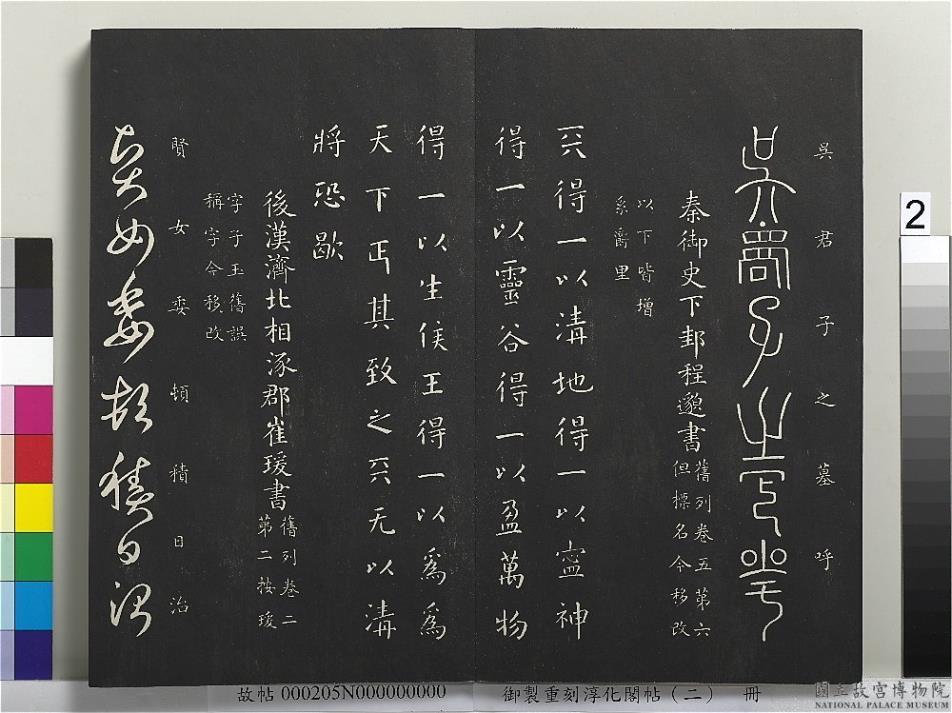 吳君子之墓呼
吳君子之墓呼
秦御史下邽程邈書
舊列卷五第六
但標名今移改
以下皆增
系 里
天得一以清地得一以寍神
得一以靈谷得一以盈萬物
得一以生侯王得一以爲爲
天下正其致之天无以清
將恐歇
後漢濟北相涿郡崔瑗書
舊列卷二
第二按瑗
字子玉舊誤
稱字今移改
賢女委頓積日治
賢女委頓積日治
2
故帖 000205N000000000
御製重刻淳化閣帖(二) 冊
國立故宮博物院
NATIONAL PALACE MUSEUM